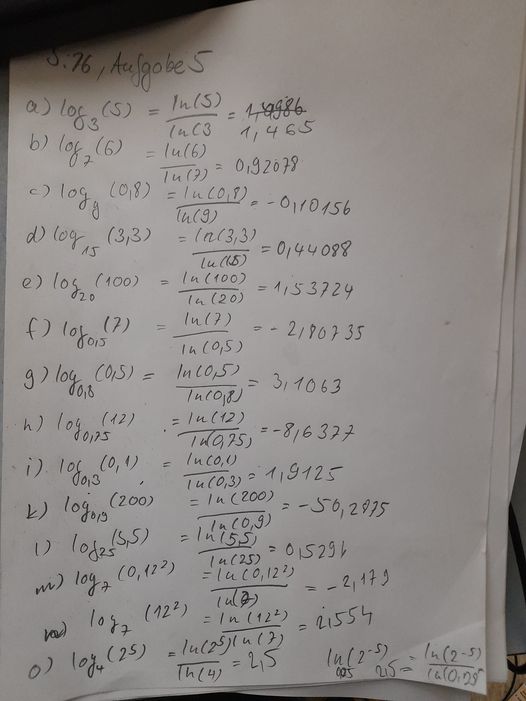 S.76, Aufgabe 5
a) log₃(5) = ln(5)/ln(3 = 1,465
b) log₇(6) = ln(6)/ln(7) = 0,92078
c) log₉(0,8) = ln(0,8)/ln(9) = -0,10156
d) log₁₅(3,3) = ln(3,3)/ln(15) = 0,44088
e) log₂₀(100) = ln(100)/ln(20) = 1,53724
f) log₀,₅(7) = ln(7)/ln(0,5) = -2,80735
g) log₀,₈(0,5) = ln(0,5)/ln(0,8) = 3,1063
h) log₀,₇₅(12) = ln(12)/ln(0,75) = -8,6377
i) log₀,₃(0,1) = ln(0,1)/ln(0,3) = 1,9125
k) log₀,₉(200) = ln(200)/ln(0,9) = -50,2875
l) log₂₅(5,5) = ln(5,5)/ln(25) = 0,5296
m) log₇(0,12²) = ln(0,12²)/ln(7) = -2,179
log₇(12²) = ln(12²)/ln(7) = 2,554
o) log₄(2⁵) = ln(2⁵)/ln(4) = 2,5